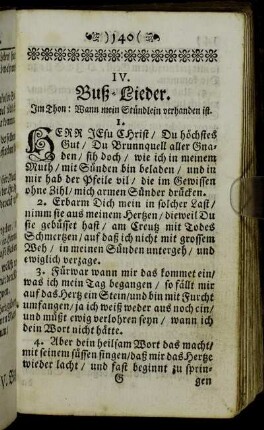 )140(
IV.
Buß-Lieder.
Im Thon: Wann mein Stündlein verhanden ist.
1.
HERR JEsu Christ / Du höchstes
Gut / Du Brunnquell aller Gna-
den / sih doch / wie ich in meinem
Muth / mit Sünden bin beladen / und in
mir hab der Pfeile vil / die im Gewissen
ohne Zihl / mich armen Sünder drücken.
2. Erbarm Dich mein in solcher Last /
nimm sie aus meinem Hertzen / dieweil Du
sie gebüsset hast / am Creutz mit Todes
Schmertzen / auf daß ich nicht mit grossem
Weh / in meinen Sünden untergeh / und
ewiglich verzage.
3. Fürwar wann mir das kommet ein /
was ich mein Tag begangen / so fällt mir
auf das Hertz ein Stein / und bin mit Furcht
umfangen / ja ich weiß weder aus noch ein /
und müßt ewig verlohren seyn / wann ich
dein Wort nicht hätte.
4. Aber dein heilsam Wort das macht /
mit seinem süssen singen / daß mir das Hertze
wieder lacht / und fast beginnt zu sprin-
G gen